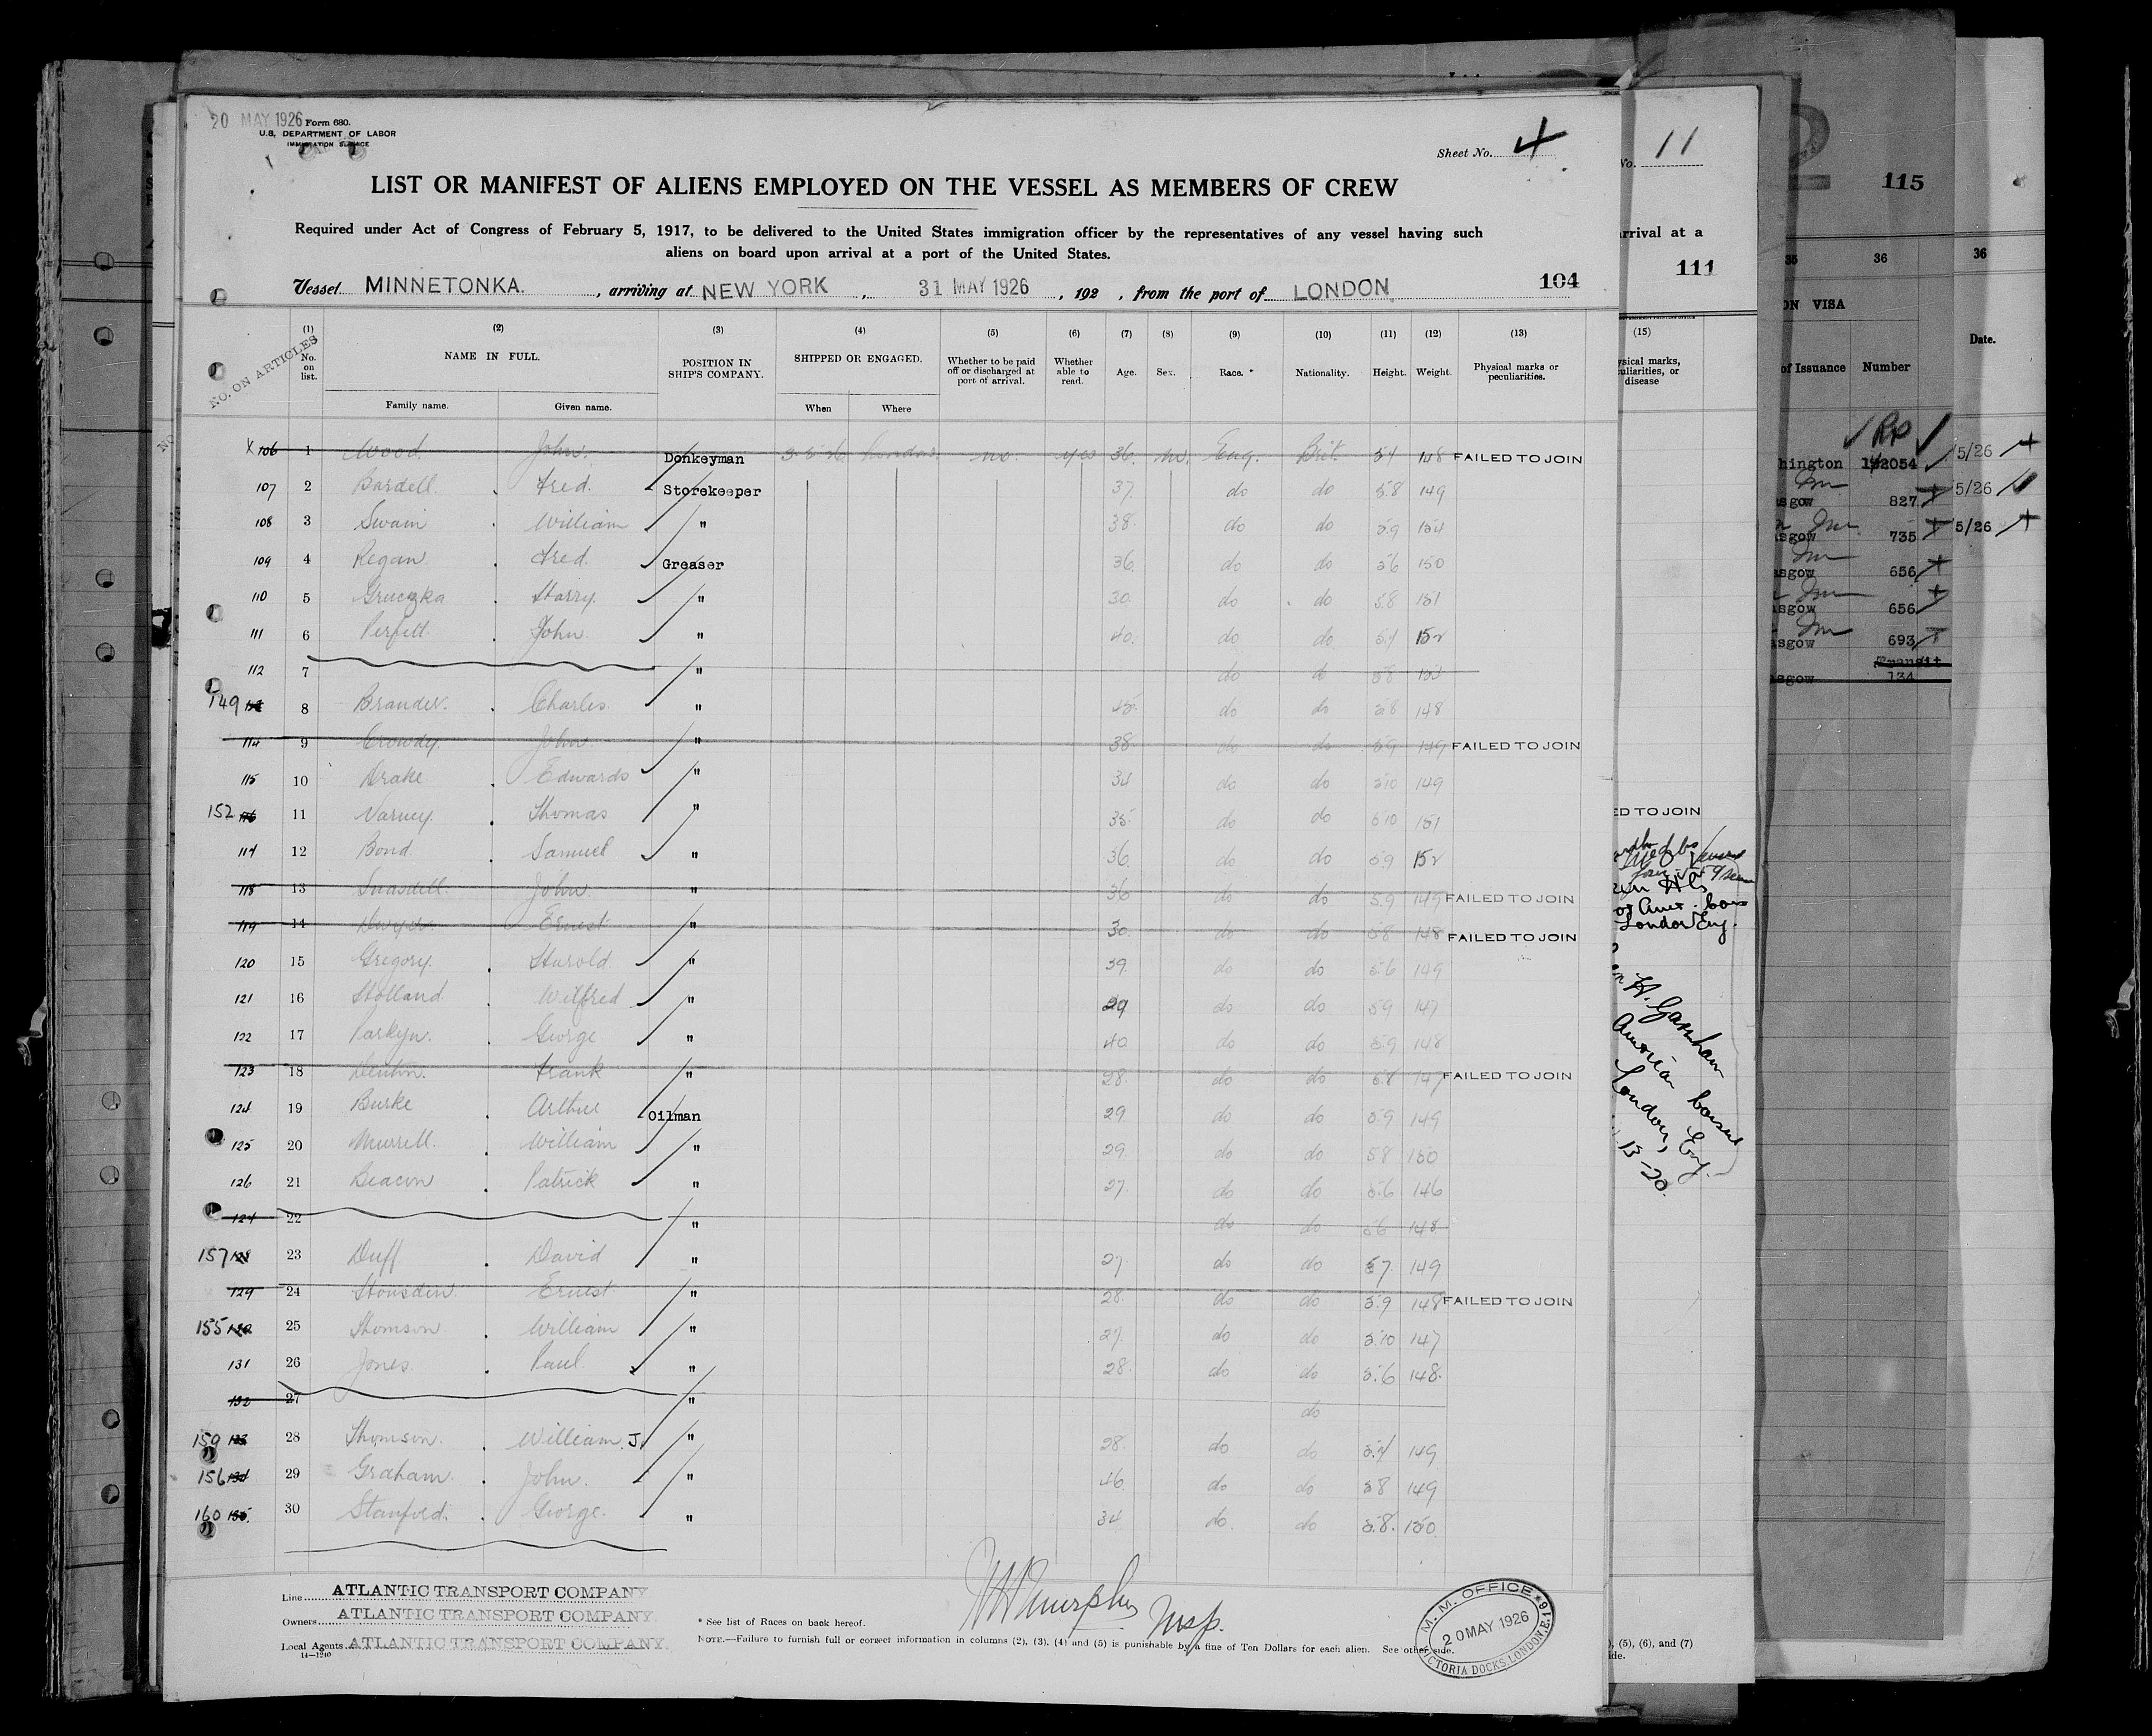 20 MAY 1926 Form 680.
U.S. DEPARTMENT OF LABOR
IMMIGRATION SERVICE
Sheet No. 4
LIST OR MANIFEST OF ALIENS EMPLOYED ON THE VESSEL AS MEMBERS OF CREW
Required under Act of Congress of February 5, 1917, to be delivered to the United States immigration officer by the representatives of any vessel having such
aliens on board upon arrival at a port of the United States.
Vessel MINNETONKA. , arriving at NEW YORK , 31 MAY 1926 , 192 , from the port of LONDON 104
NO. ON ARTICLES
(1) (2) (3) (4) (5) (6) (7) (8) (9) (10) (11) (12) (13)
No. on list. NAME IN FULL. POSITION IN SHIP'S COMPANY. SHIPPED OR ENGAGED. Whether to be paid off or discharged at port of arrival. Whether able to read. Age. Sex. Race. * Nationality. Height. Weight. Physical marks or peculiarities.
Family name. Given name. When Where
X 106 1 Wood John. Donkeyman 3.5.26 London. no. yes 36. M. Eng. Brit. 5.7 148 FAILED TO JOIN
107 2 Bardell. Fred. Storekeeper 37. do do 5.8 149
108 3 Swain William " 38. do do 5.9 154
109 4 Regan Fred. Greaser 36. do do 5.6 150
110 5 Gruczka Harry. " 30. do do 5.8 151
111 6 Perfett John. " 40. do do 5.7 152
112 7 " do do 5.8
149 8 Brander. Charles. " 45. do do 5.8 148
114 9 Crowdy. John. " 38. do do 5.9 149 FAILED TO JOIN
115 10 Drake Edwards " 34 do do 5.10 149
152 116 11 Varney. Thomas " 35. do do 5.10 151
117 12 Bond. Samuel " 36. do do 5.9 152
118 13 John. " 36 do do 5.9 149 FAILED TO JOIN
119 14 Ernest " 30. do do 5.8 148 FAILED TO JOIN
120 15 Gregory. Harold " 39. do do 5.6 149
121 16 Holland Wilfred " 29 do do 5.9 147
122 17 Parkyn. George " 40. do do 5.9 148
123 18 Denton. Frank " 28. do do 5.8 147 FAILED TO JOIN
124 19 Burke Arthur Oilman 29. do do 5.9 149
125 20 Murrell. William " 29. do do 5.8 150
126 21 Beacon Patrick " 27. do do 5.6 146
127 22 " do do 5.6 148
157 128 23 Duff David " 27. do do 5.7. 149
129 24 Housden. Ernest " 28. do do 5.9 148 FAILED TO JOIN
155 130 25 Thomson. William " 27. do do 5.10 147
131 26 Jones. Paul. " 28. do do 5.6 148.
132 27 " do
159 133 28 Thomson. William. J. " 28. do do 5.7 149
156 134 29 Graham. John. " 46. do do 5.8 149
160 135. 30 Stanford. George. " 34 do. do 5.8. 150.
Line ATLANTIC TRANSPORT COMPANY
Owners ATLANTIC TRANSPORT COMPANY.
Local Agents ATLANTIC TRANSPORT COMPANY.
14—1240
* See list of Races on back hereof.
Murphy Insp.
NOTE.—Failure to furnish full or correct information in columns (2), (3), (4) and (5) is punishable by a fine of Ten Dollars for each alien. See other side.
M. M. OFFICE
20 MAY 1926
VICTORIA DOCKS. LONDON, E.16
No. 11
arrival at a
111
(15)
physical marks, peculiarities, or disease
FAILED TO JOIN
London Eng.
H. Garnham
American Consul
London, Eng.
13-20.
, (5), (6), and (7)
side.
2
115
35 36
ON VISA
of Issuance Number
hington 132054
asgow 827
asgow 735
asgow 656
asgow 656
asgow 693
Transit
asgow 134
36
Date.
5/26
5/26
5/26